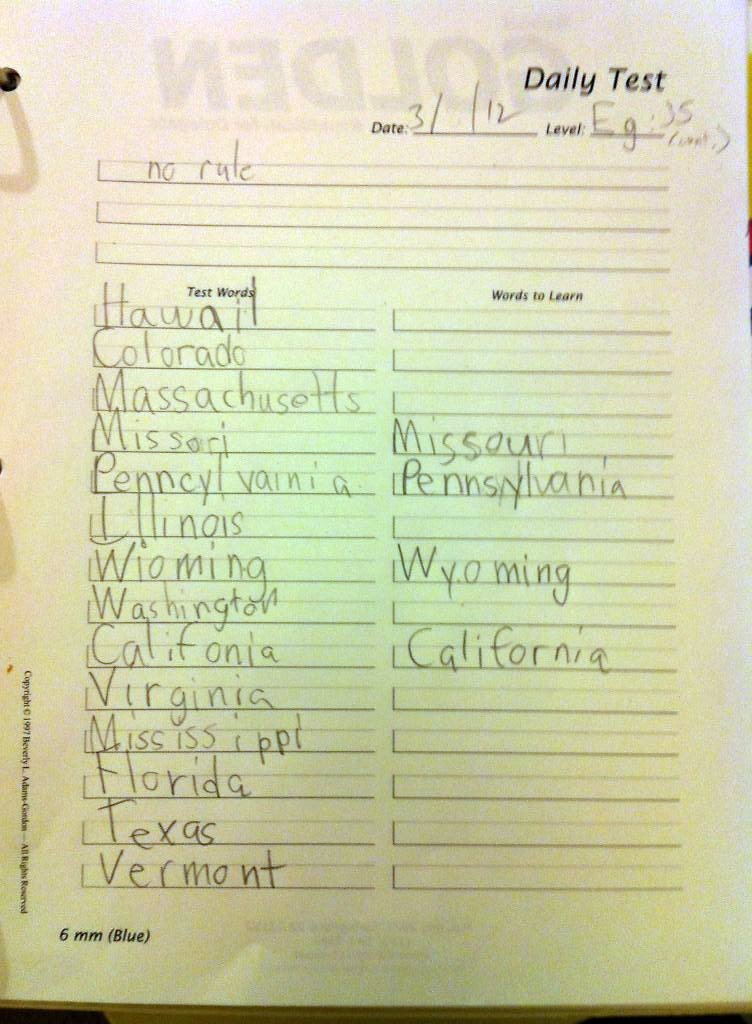 GOLDEN
Daily Test
Date: 3/ /12 Level: Eg: 35
(cont.)
no rule
Test Words Words to Learn
Hawaii
Colorado
Massachusetts
Missori Missouri
Penncylvainia Pennsylvania
Illinois
Wioming Wyoming
Washington
Califonia California
Virginia
Mississippi
Florida
Texas
Vermont
6 mm (Blue)
Copyright © 1997 Beverly L. Adams-Gordon — All Rights Reserved